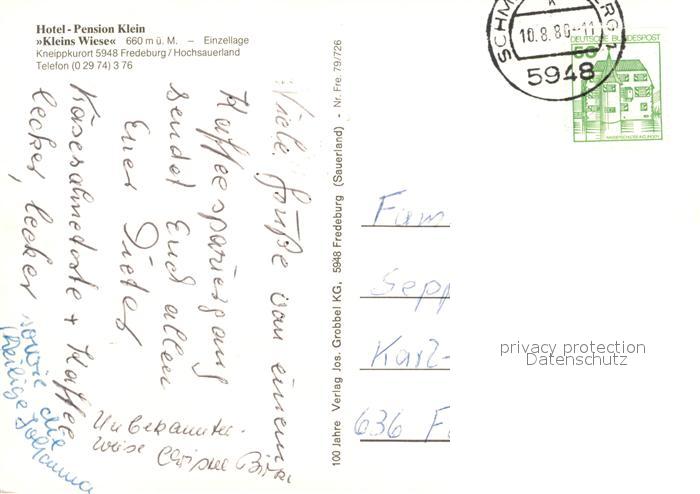 Hotel - Pension Klein
»Kleins Wiese« 660 m ü. M. – Einzellage
Kneippkurort 5948 Fredeburg / Hochsauerland
Telefon (0 29 74) 3 76
Viele Grüße von einem
Kaffeespaziergang
sendet Euch allen
Euer Dieter
Käsesahnetorte + Kaffee
lecker, lecker
sowie die
Heilige Johanna
Unbekannter-
weise
100 Jahre Verlag Jos. Grobbel KG, 5948 Fredeburg (Sauerland) Nr. Fre. 79/726
SCHM
10.8.80-11
5948
DEUTSCHE BUNDESPOST
50
Fam
Sepp
Karl-
636 F
privacy protection
Datenschutz